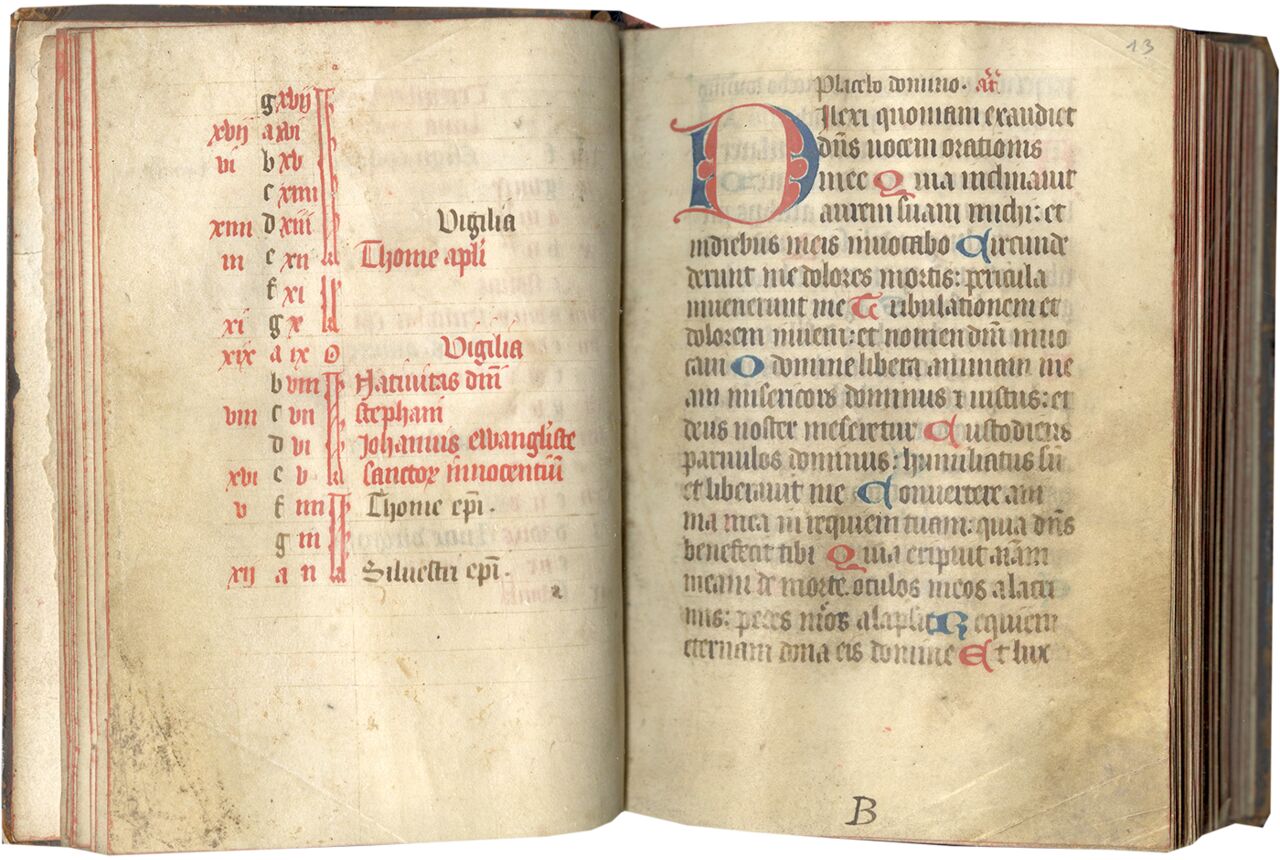 g xvij
xvij a xvi
vi b xv
c xiiii
xiiii d xiii Vigilia
iii e xii Thome apli
f xi
xi g x
xix a ix Vigilia
b viii Natiuitas dni
viii c vii stephani
d vi Johannis ewangliste
xvi e v sanctor innocentiu
v f iiii Thome epi.
g iii
xij a ii Siluestri epi.
13
Placebo domino. an
Dilexi quoniam exaudiet
dns uocem orationis
mee Quia inclinauit
aurem suam michi: et
indiebus meis inuocabo Circunde
derunt me dolores mortis: pericula
inuenerunt me Tribulationem et
dolorem inueni: et nomen dni inuo
caui O domine libera animam me
am misericors dominus et iustus: et
deus noster miseretur Custodiens
paruulos dominus: humiliatus su
et liberauit me Conuertere ani
ma mea in requiem tuam: quia dns
benefecit tibi Quia eripuit aiam
meam de morte. oculos meos a lacri
mis: pedes meos a lapsu Requiem
eternam dona eis domine Et lux
B